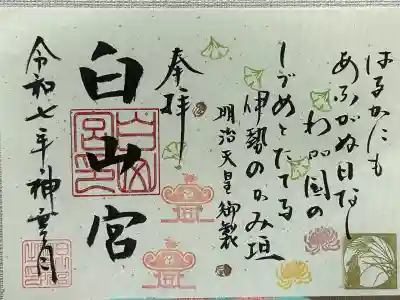 はるかにも
あふがぬ日なし
わが国の
しづめとたてる
伊勢のかみ垣
明治天皇御製
奉拝
白山宮
令和七年神無月